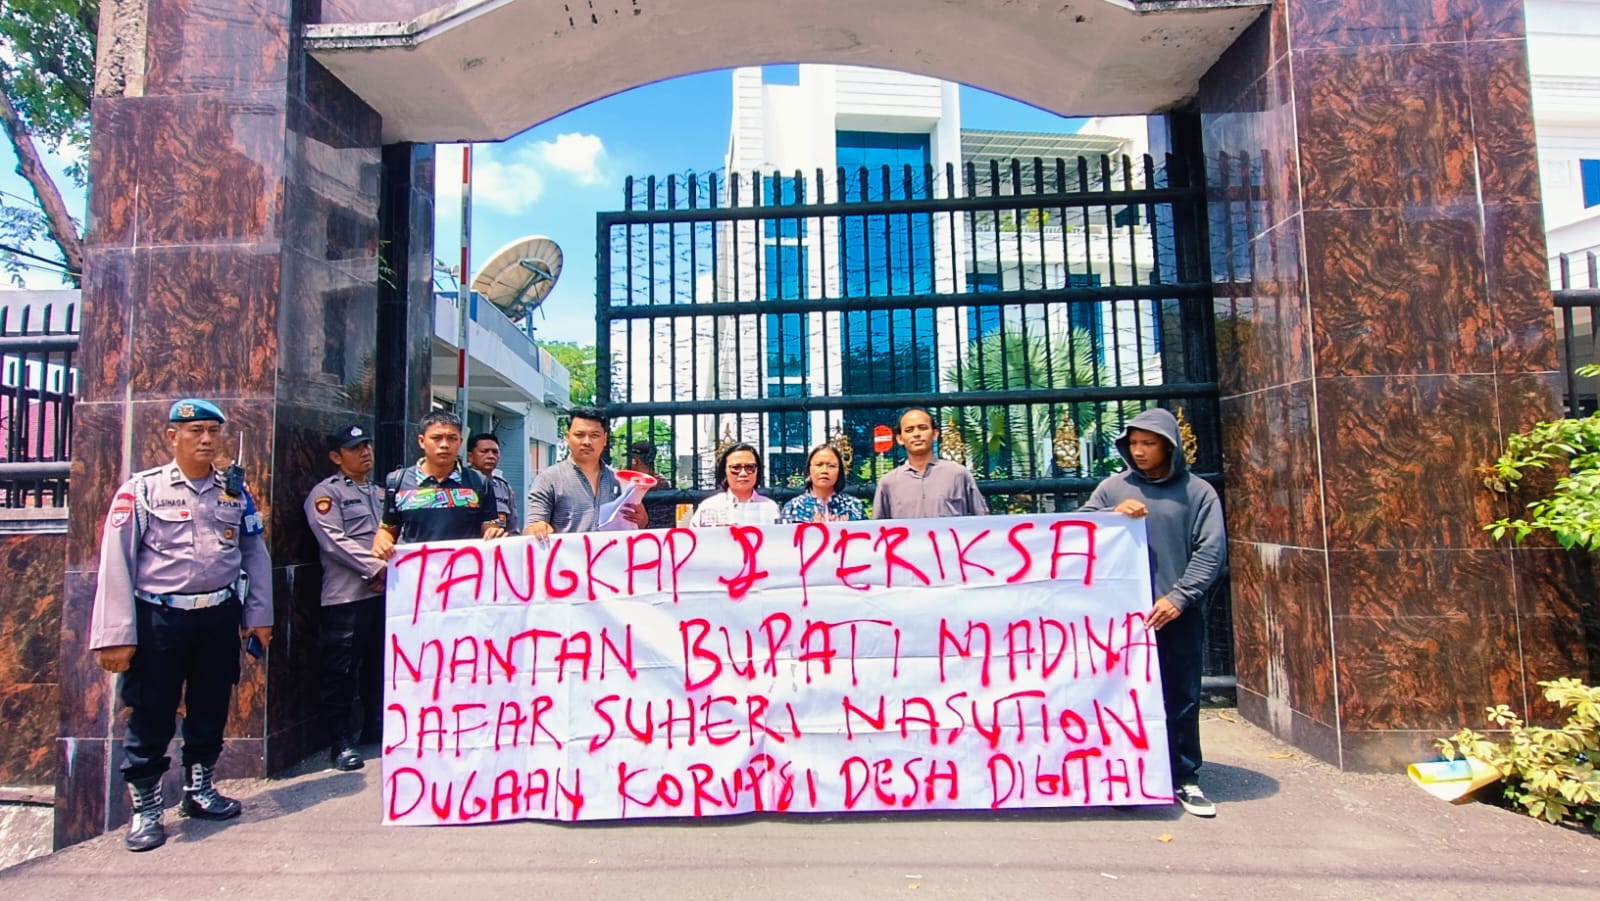 TANGKAP & PERIKSA
MANTAN BUPATI MADINA
JAFAR SUHERI NASUTION
DUGAAN KORUPSI DESA DIGITAL